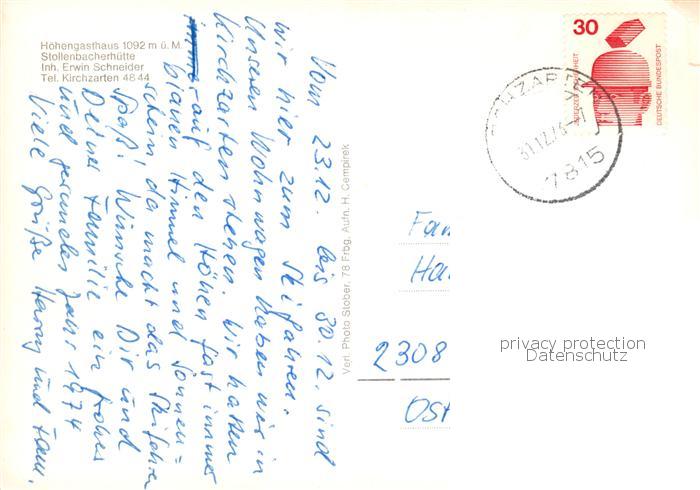 Höhengasthaus 1092 m ü. M.
Stollenbacherhütte
Inh. Erwin Schneider
Tel. Kirchzarten 48 44
Vom 23.12. bis 30.12. sind
wir hier zum Skifahren.
Unseren Wohnwagen haben wir in
Kirchzarten stehen. Wir hatten
auf den Höhen fast immer
blauen Himmel und Sonnen=
schein, da macht das Skifahren
Spaß! Wünsche Dir und
Deiner Familie ein frohes
und gesundes Jahr 1974
Viele Grüße Harry und Fam.
Verl. Photo Stober, 78 Frbg, Aufn. H. Cempirek
30
DEUTSCHE BUNDESPOST
JEDERZEIT SICHERHEIT
31.12.73
7815
Fam
Ha
2308
Ost
privacy protection
Datenschutz